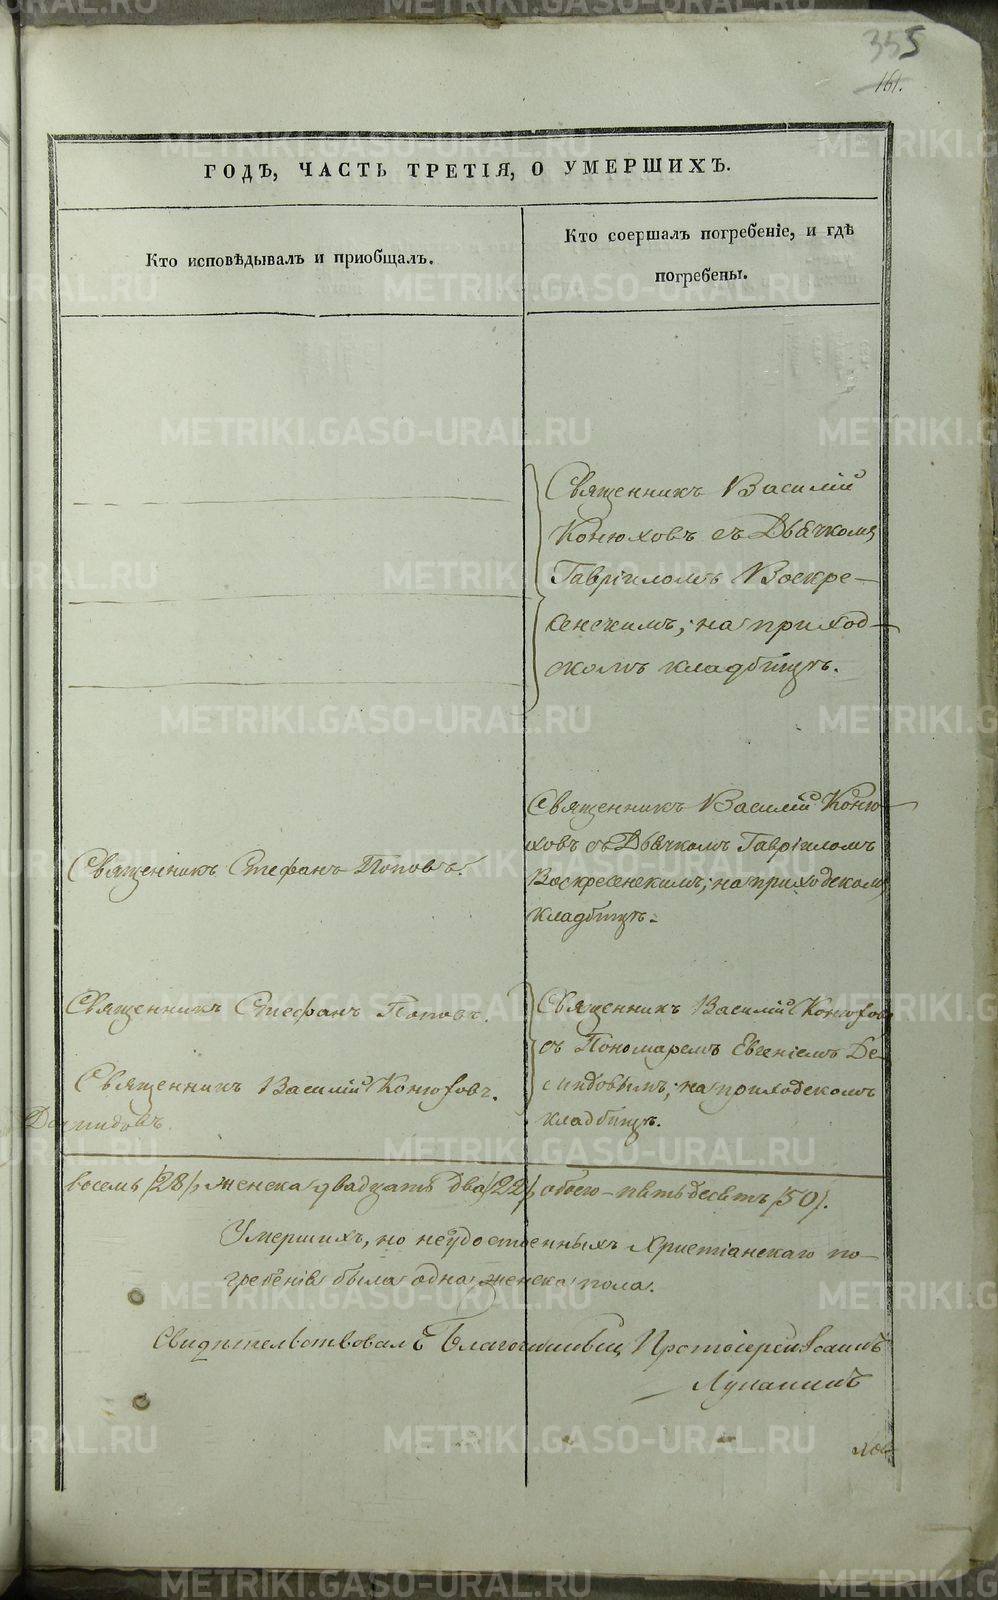 355
161.
ГОДЪ, ЧАСТЬ ТРЕТІЯ, О УМЕРШИХЪ.
Кто исповѣдывалъ и пріобщалъ.
Кто соершалъ погребеніе, и гдѣ
погребены.
Священникъ Василій
Конюховъ съ Дьячкомъ
Гавріиломъ Воскре-
сенскимъ; на приход-
скомъ кладбищѣ.
Священникъ Стефанъ Поповъ.
Священникъ Василій Коню-
ховъ съ Дьячкомъ Гавріиломъ
Воскресенскимъ; на приходскомъ
кладбищѣ.
Священникъ Стефанъ Поповъ.
Священникъ Василій Конюховъ.
Священникъ Василій Конюховъ
съ Пономаремъ Евгеніемъ Де-
мидовымъ; на приходскомъ
кладбищѣ.
Демидовъ.
восемь /28/, женска двадцать два /22/, обоего - пятьдесятъ /50/.
Умершихъ, но неудостоенныхъ Христіанскаго по-
гребенія была одна женска пола.
Свидѣтельствовалъ Благочинный Протоіерей Іоаннъ
Лукანинъ
METRIKI.GASO-URAL.RU